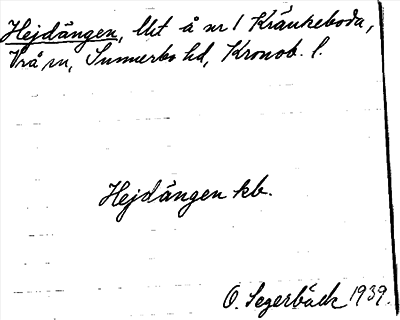 Hejdängen, lht å nr 1 Kränkeboda,
Vrå sn, Sunnerbo hd, Kronob. l.
Hejdängen kb.
O. Segerbäck 1939.